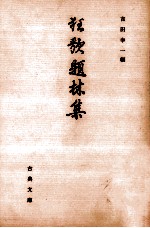 吉田幸一編
狂歌題林集
古典文庫